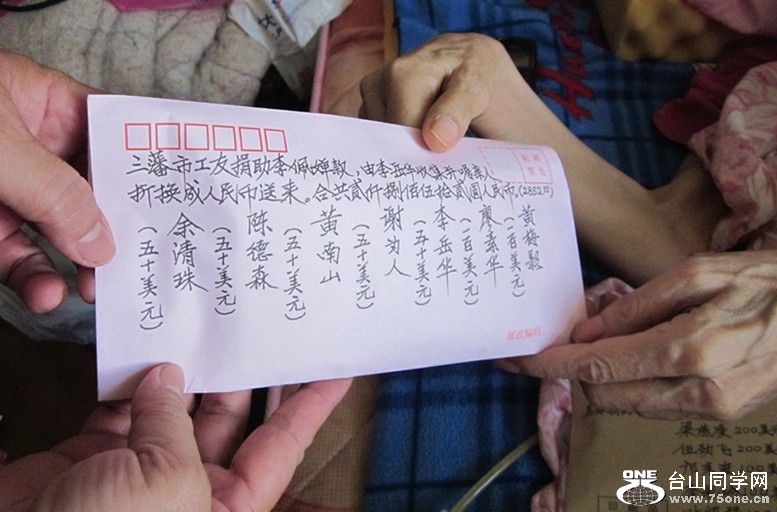 三藩市工友捐助李佩婵款，由李岳华收集并嘱亲人
折换成人民币送来。合共贰仟捌佰伍拾贰圆人民币。(2852元)
黄梅毅（一百美元）
廖素华（一百美元）
李岳华（五十美元）
谢为人（五十美元）
黄南山（五十美元）
陈德森（五十美元）
余清珠（五十美元）
邮政编码
梁燕凌200美
伍劲飞200美
100美
ONE
台山同学网
www.75one.cn